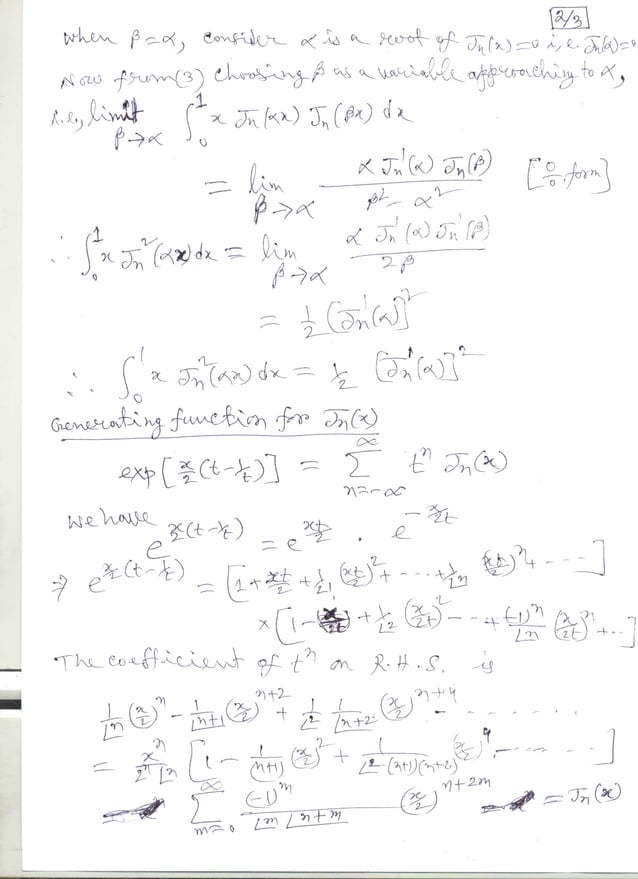 2/3
when β=α, consider α is a root of Jn(x)=0 i.e. Jn(α)=0
Now from (3) choosing β as a variable approaching to α,
i.e., limit β→α ∫₀¹ x Jn(αx) Jn(βx) dx
= lim β→α α Jn'(α) Jn(β) / β² - α² [0/0 form]
∴ ∫₀¹ x Jn²(αx) dx = lim β→α α Jn'(α) Jn'(β) / 2β
= 1/2 [Jn'(α)]²
∴ ∫₀¹ x Jn²(αx) dx = 1/2 [Jn'(α)]²
Generating function for Jn(x)
exp[x/2 (t-1/t)] = ∑ n=-∞ ∞ tⁿ Jn(x)
we have e^{x/2 (t-1/t)} = e^{xt/2} . e^{-x/2t}
⇒ e^{x/2 (t-1/t)} = [1 + xt/2 + 1/⌊2 (xt/2)² + ---- + 1/⌊n (xt/2)ⁿ + ----]
× [1 - (x/2t) + 1/⌊2 (x/2t)² --- + (-1)ⁿ/⌊n (x/2t)ⁿ + ...]
The coefficient of tⁿ on R.H.S. is
1/⌊n (x/2)ⁿ - 1/⌊n+1 (x/2)ⁿ⁺² + 1/⌊2 1/⌊n+2 (x/2)ⁿ⁺⁴ - .......
= xⁿ/2ⁿ⌊n [1 - 1/(n+1) (x/2)² + 1/⌊2 (n+1)(n+2) (x/2)⁴ ------]
∑ m=0 ∞ (-1)ᵐ/⌊m ⌊n+m (x/2)ⁿ⁺²ᵐ = Jn(x)